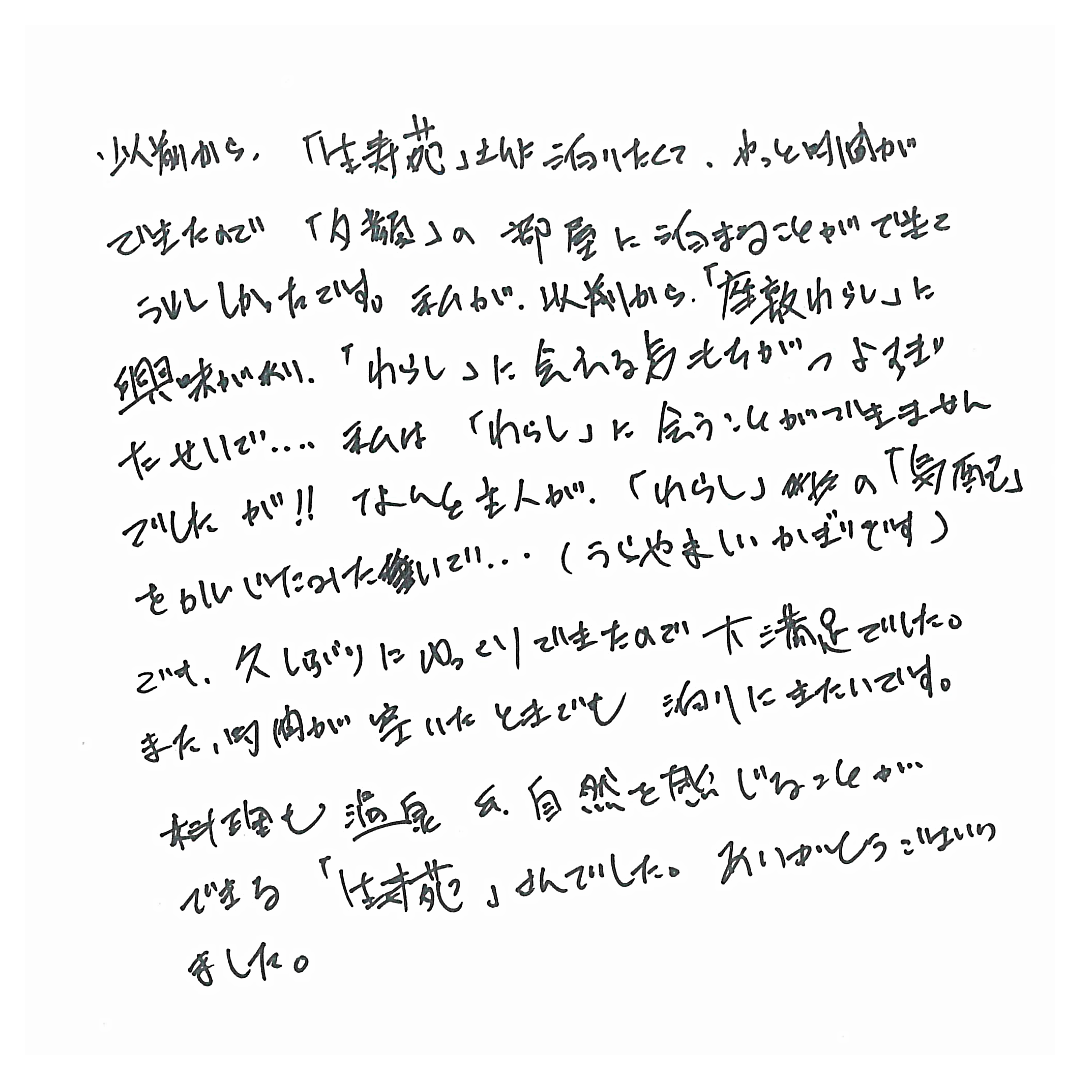 以前から、「佳寿苑」さんに泊りたくて、やっと時間が
できたので「夕顔」の部屋に泊まることができて
うれしかったです。私が、以前から、「座敷わらし」に
興味があり、「わらし」に会える気もちがつよすぎ
たせいで‥‥私は「わらし」に会うことができません
でしたが!!なんと主人が、「わらし」の「気配」
をかんじたみたいで‥‥(うらやましいかぎりです)
でも、久しぶりにゆっくりできたので大満足でした。
また、時間が空いたときでも泊りにきたいです。
料理も温泉も、自然を感じることが
できる「佳寿苑」さんでした。ありがとうございり
ました。